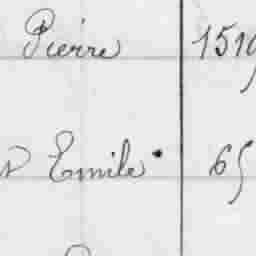 Pierre 151
Emile 65